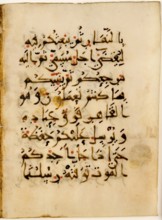 بالنهار ثم يبعثكم فيه
ليقضى أجل مسمى ثم إليه
مرجعكم ثم ينبئكم
بما كنتم تعملون وهو
القاهر فوق عباده
ويرسل عليكم حفظة
حتى إذا جاء أحدكم
الموت توفته رسلنا